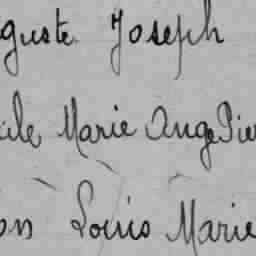 guste Joseph
ile Marie Ange Pier
on Louis Marie